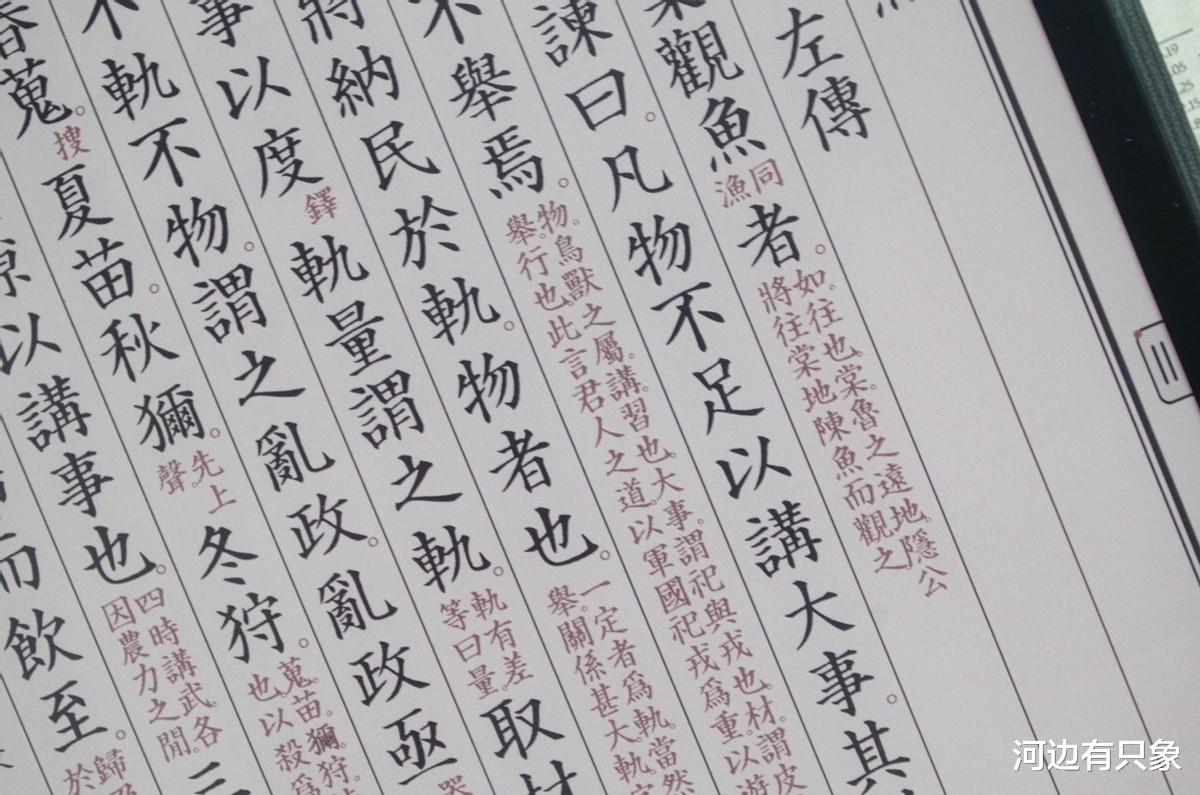 左傳
觀魚
同
漁
者。
如。往也。棠。魯之遠地。隱公
將往棠地陳魚而觀之
諫曰。凡物不足以講大事。其
不舉焉。
物。鳥獸之屬。講。習也。大事。謂祀與戎也。材。謂皮
舉。行也。此言君人之道。以軍國祀戎爲重。以游
將納民於軌。物者也。
一定者爲軌。當然
舉。關係甚大。軌
事以度
鐸
軌量謂之軌。
軌有差
等曰量。
取材
不軌不物。謂之亂政。亂政亟
春蒐。
搜
夏苗。秋獮。
先上
聲。
冬狩。
蒐。苗。獮。狩。
也。以殺爲
以講事也。
四時講武。各
因農力之閒。
三
而飲至。
歸
於
河边有只象